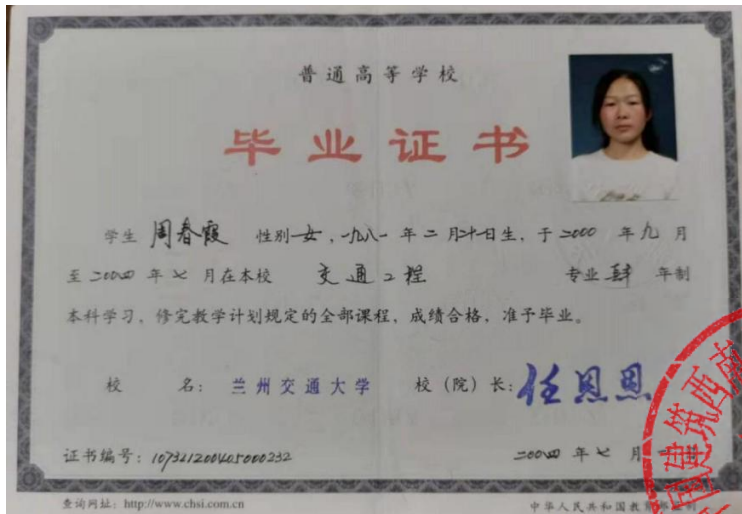 普通高等学校
毕业证书
学生 周春霞 性别 女，一九八一年二月廿日生，于二〇〇〇年九月
至二〇〇四年七月在本校 交通工程 专业 肆 年制
本科学习，修完教学计划规定的全部课程，成绩合格，准予毕业。
校 名：兰州交通大学 校（院）长：任恩恩
证书编号：107321200405000232
二〇〇四年七月
查询网址：http://www.chsi.com.cn
中华人民共和国教育部
国建筑西南